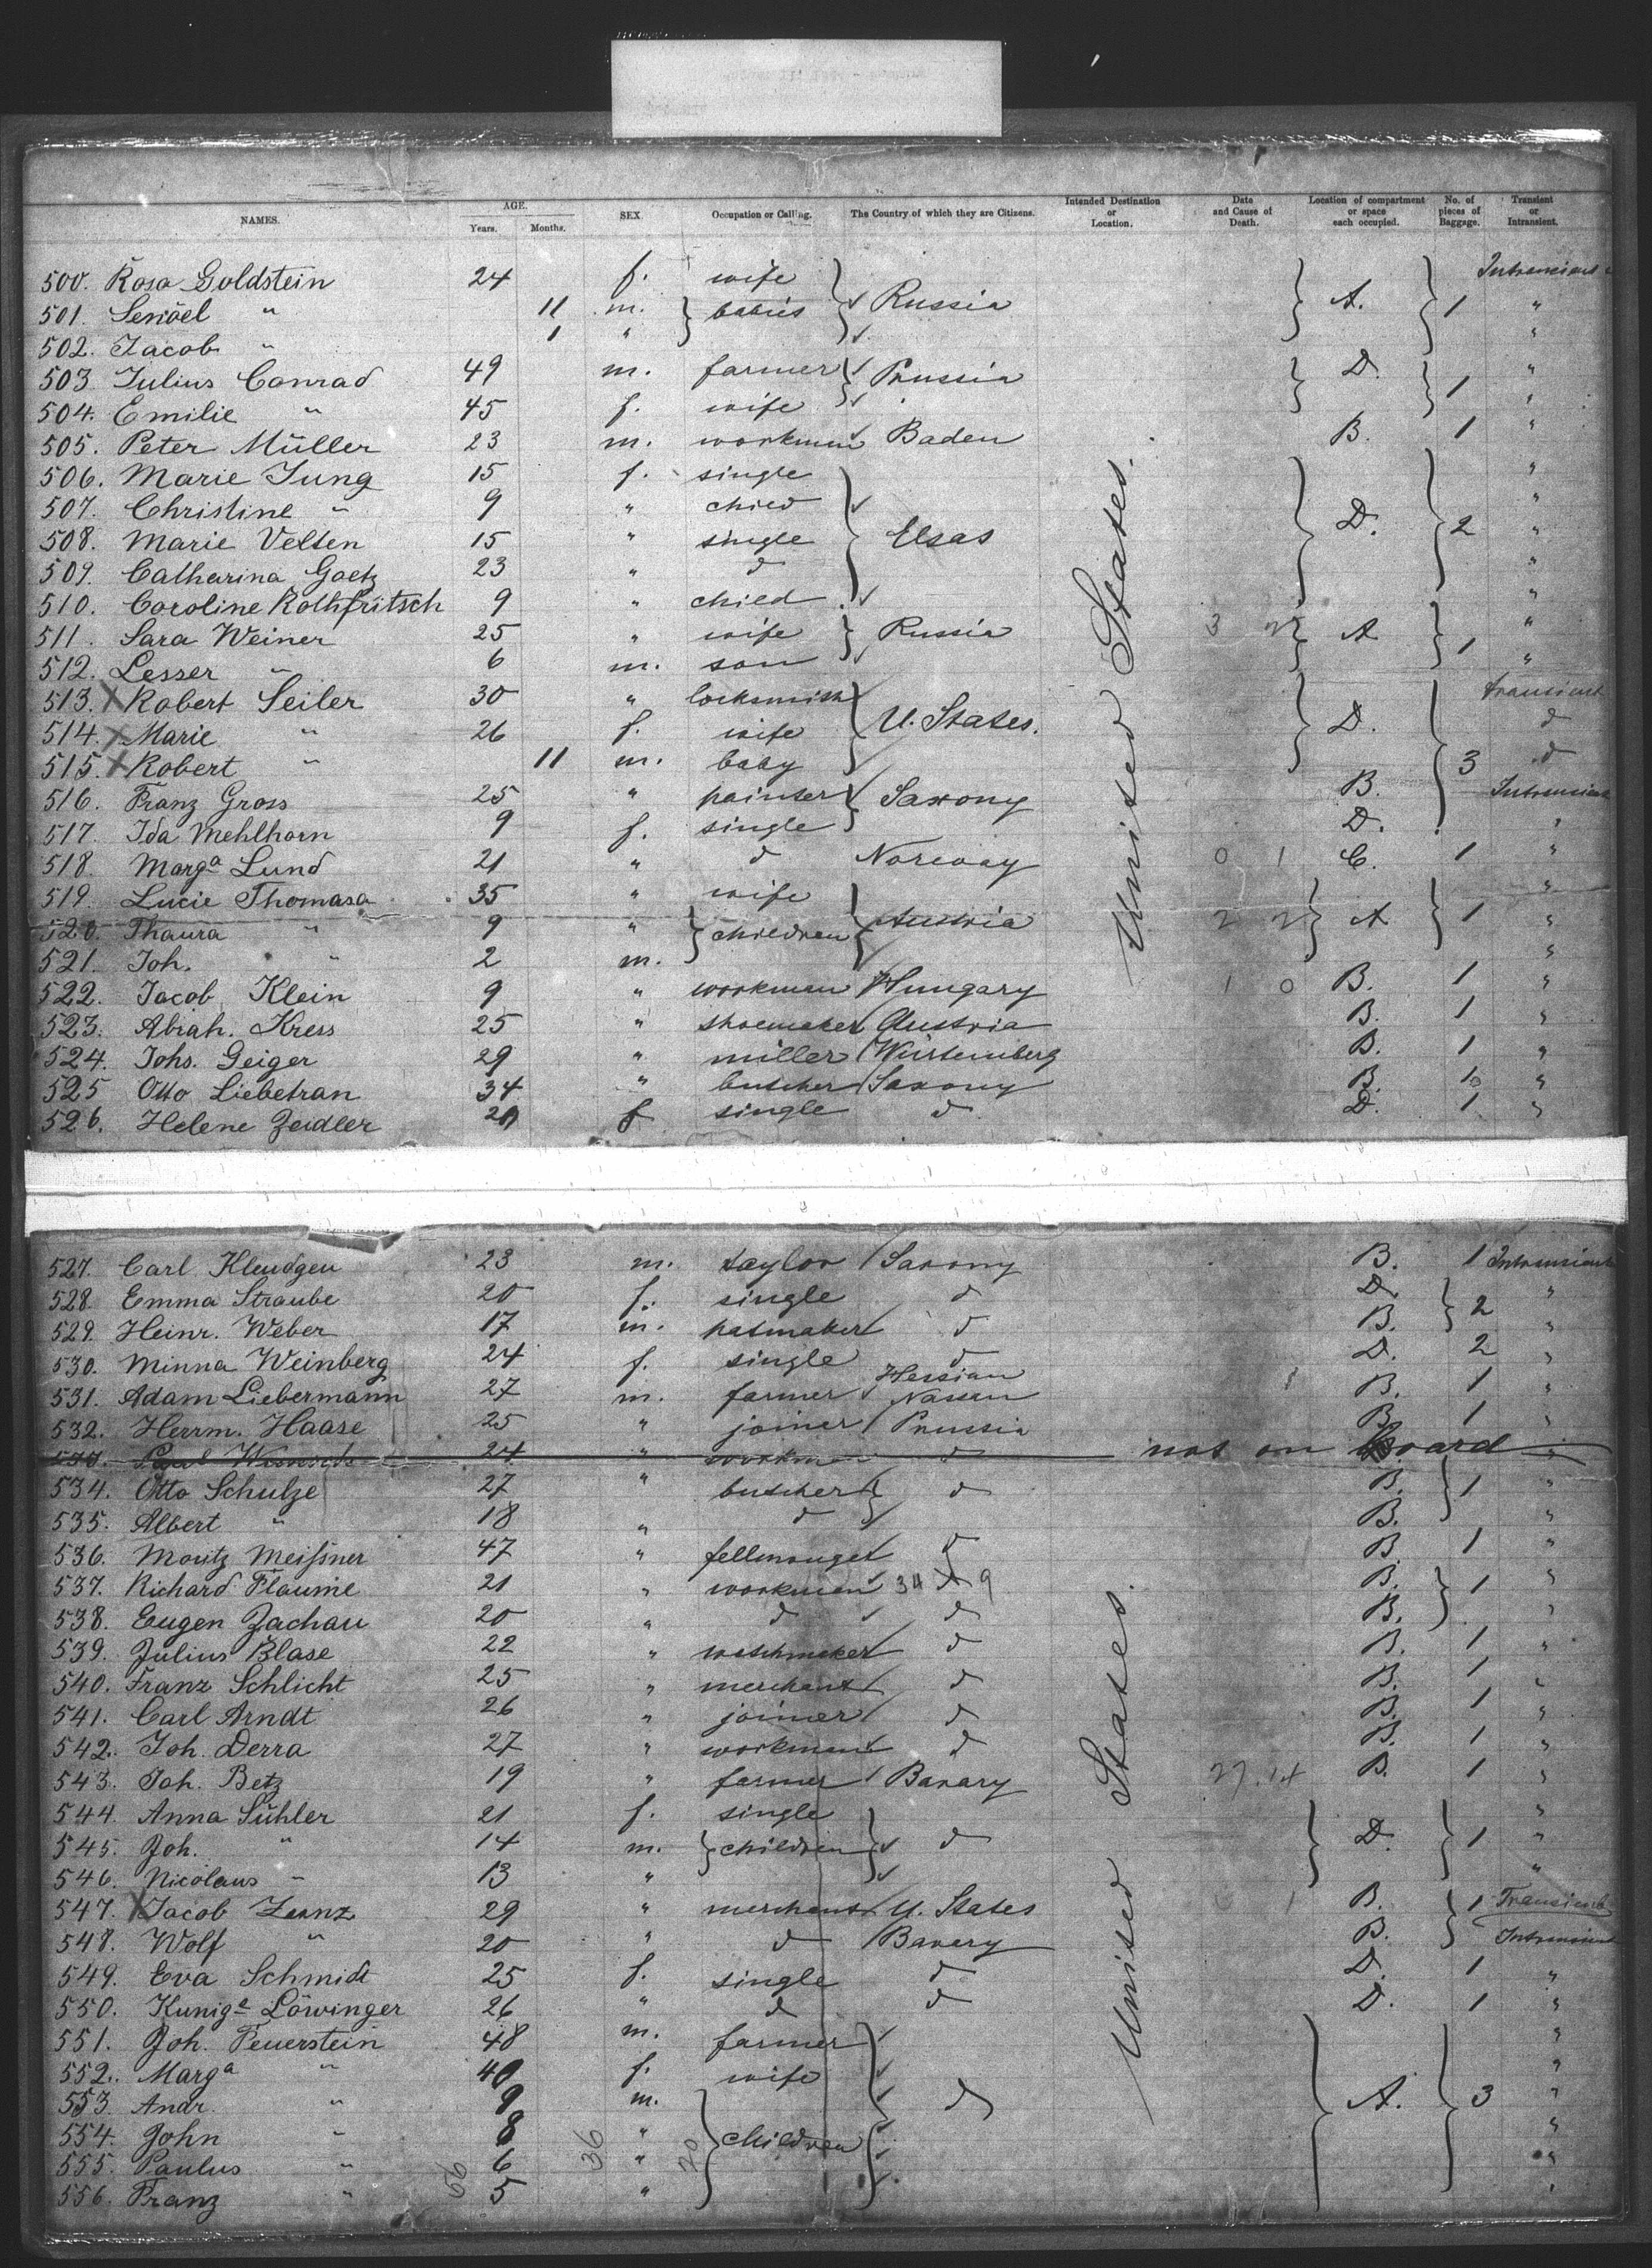 NAMES. AGE. Years. Months. SEX. Occupation or Calling. The Country of which they are Citizens. Intended Destination or Location. Date and Cause of Death. Location of compartment or space each occupied. No. of pieces of Baggage. Transient or Intransient.
500. Rosa Goldstein 24 f. wife
501. " 11 m. babies Russia A. 1 "
502. Jacob " 1 " "
503 Julius Conrad 49 m. farmer Prussia D. 1 "
504. Emilie " 45 f. wife "
505. Peter Müller 23 m. workman Baden B. 1 "
506. Marie Jung 15 f. single "
507. Christine " 9 " child "
508. Marie Velten 15 " single Elsas D. 2 "
509. Catharina Goetz 23 " d "
510. Caroline Rothfritsch 9 " child "
511. Sara Weiner 25 " wife Russia 3 2 A 1 "
512. Lesser " 6 m. son "
513. X Robert Seiler 30 " locksmith transient
514. X Marie " 26 f. wife U. States. D. d
515. X Robert " 11 m. baby 3 d
516. Franz Gross 25 " painter Saxony B. Intransient
517. Ida Mehlhorn 9 f. single D. "
518. Marga Lund 21 " d Norway 0 1 C. 1 "
519. Lucie Thomasa 35 " wife "
520. Thaura " 9 " children Austria 2 2 A 1 "
521. Joh. " 2 m. "
522. Jacob Klein 9 " workman Hungary 1 0 B. 1 "
523. Abrah. Kress 25 " shoemaker Austria B. 1 "
524. Johs. Geiger 29 " miller Würtemberg B. 1 "
525 Otto Liebetran 34 " butcher Saxony B. 1 "
526. Helene Zeidler 20 f single d D. 1 "
United States.
527. Carl Kleudgen 23 m. taylor Saxony B. 1 Intransient
528. Emma Straube 20 f. single d D. "
529. Heinr. Weber 17 m. hatmaker d B. 2 "
530. Minna Weinberg 24 f. single d D. 2 "
531. Adam Liebermann 27 m. farmer Hessian Nassau 1 B. 1 "
532. Herrm. Haase 25 " joiner Prussia B. 1 "
24 " workman d not on board "
534. Otto Schulze 27 " butcher d B. 1 "
535. Albert " 18 " d B. "
536. Moritz Meißner 47 " fellmonger d B. 1 "
537. Richard Flaume 21 " workman 34 d 9 B. 1 "
538. Eugen Zachau 20 " d d B. "
539. Julius Blase 22 " watchmaker d B. 1 "
540. Franz Schlicht 25 " merchant d B. 1 "
541. Carl Arndt 26 " joiner d B. 1 "
542. Joh. Derra 27 " workman d B. 1 "
543. Joh. Betz 19 " farmer Bavary 27.14 B. 1 "
544. Anna Sühler 21 f. single "
545. Joh. " 14 m. children d D. 1 "
546. Nicolaus " 13 " "
547. X Jacob Lennz 29 " merchant U. States 1 B. 1 Transient
548. Wolf " 20 " d Bavery B. Intransient
549. Eva Schmidt 25 f. single d D. 1 "
550. Kunige Löwinger 26 " d d D. 1 "
551. Joh. Feuerstein 48 m. farmer "
552. Marga " 40 f. wife "
553. Andr. " 9 m. d A. 3 "
554. John " 8 " children "
555. Paulus " 6 " "
556. Franz " 5 " "
United States.
66 36 20